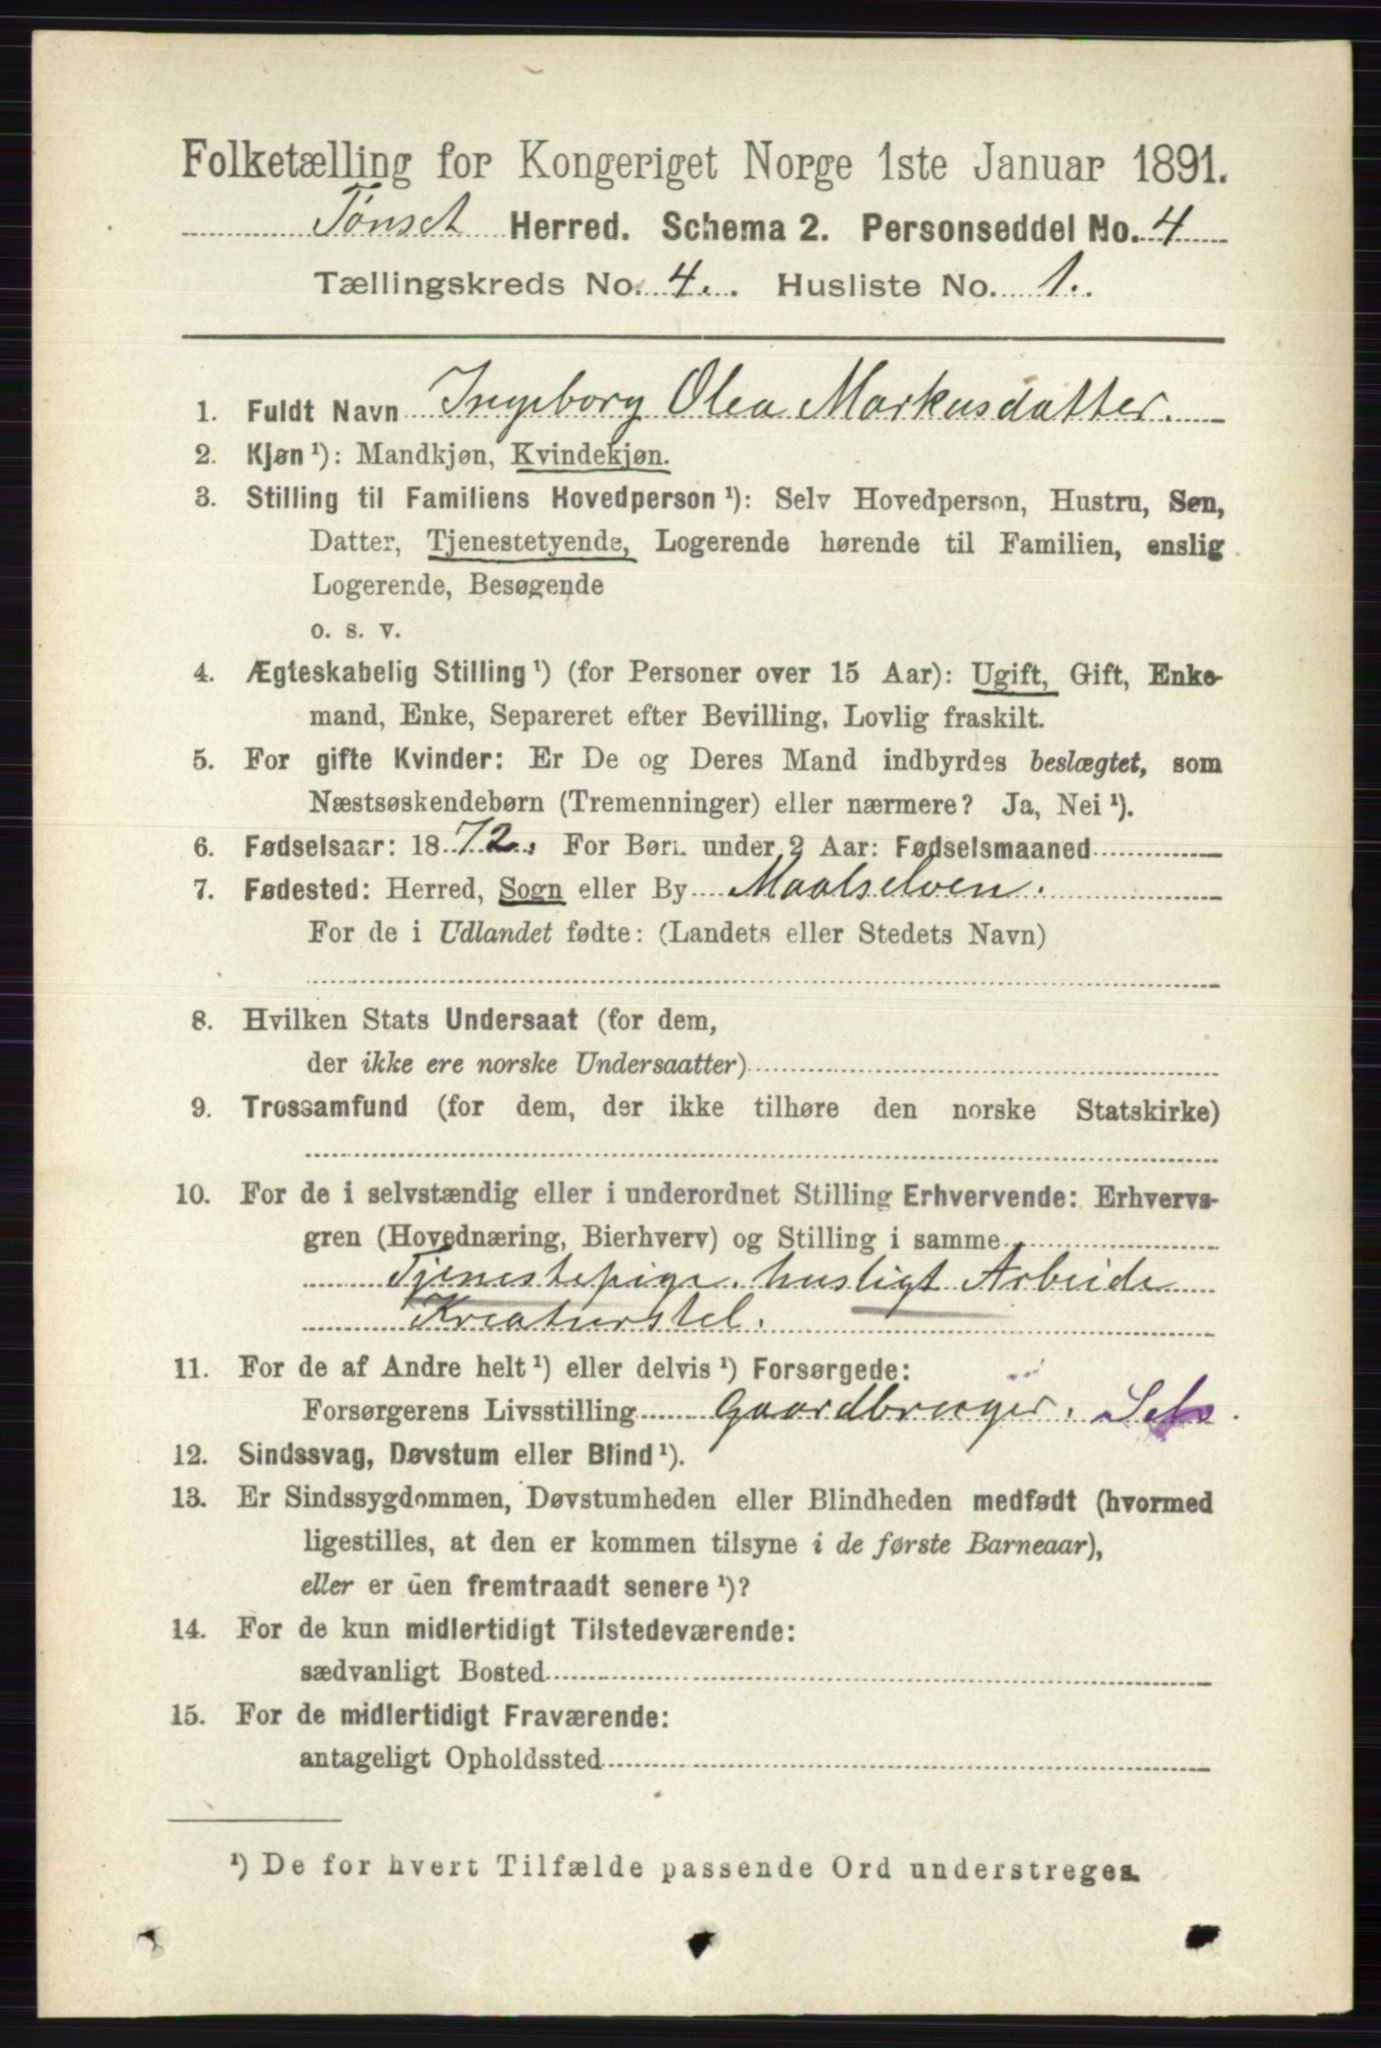 Folketælling for Kongeriget Norge 1ste Januar 1891.
Tønset Herred. Schema 2. Personseddel No. 4
Tællingskreds No. 4. Husliste No. 1.
1. Fuldt Navn Ingeborg Olea Markusdatter.
2. Kjøn ¹): Mandkjøn, Kvindekjøn.
3. Stilling til Familiens Hovedperson ¹): Selv Hovedperson, Hustru, Søn,
Datter, Tjenestetyende, Logerende hørende til Familien, enslig
Logerende, Besøgende
o. s. v.
4. Ægteskabelig Stilling ¹) (for Personer over 15 Aar): Ugift, Gift, Enke-
mand, Enke, Separeret efter Bevilling, Lovlig fraskilt.
5. For gifte Kvinder: Er De og Deres Mand indbyrdes beslægtet, som
Næstsøskendebørn (Tremenninger) eller nærmere? Ja, Nei ¹).
6. Fødselsaar: 1872. For Børn under 2 Aar: Fødselsmaaned
7. Fødested: Herred, Sogn eller By Maalselven.
For de i Udlandet fødte: (Landets eller Stedets Navn)
8. Hvilken Stats Undersaat (for dem,
der ikke ere norske Undersaatter)
9. Trossamfund (for dem, der ikke tilhøre den norske Statskirke)
10. For de i selvstændig eller i underordnet Stilling Erhvervende: Erhvervs-
gren (Hovednæring, Bierhverv) og Stilling i samme
Tjenestepige. husligt Arbeide
Kreaturstel.
11. For de af Andre helt ¹) eller delvis ¹) Forsørgede:
Forsørgerens Livsstilling Gaardbruger.
12. Sindssvag, Døvstum eller Blind ¹).
13. Er Sindssygdommen, Døvstumheden eller Blindheden medfødt (hvormed
ligestilles, at den er kommen tilsyne i de første Barneaar),
eller er den fremtraadt senere ¹)?
14. For de kun midlertidigt Tilstedeværende:
sædvanligt Bosted
15. For de midlertidigt Fraværende:
antageligt Opholdssted
¹) De for hvert Tilfælde passende Ord understreges.